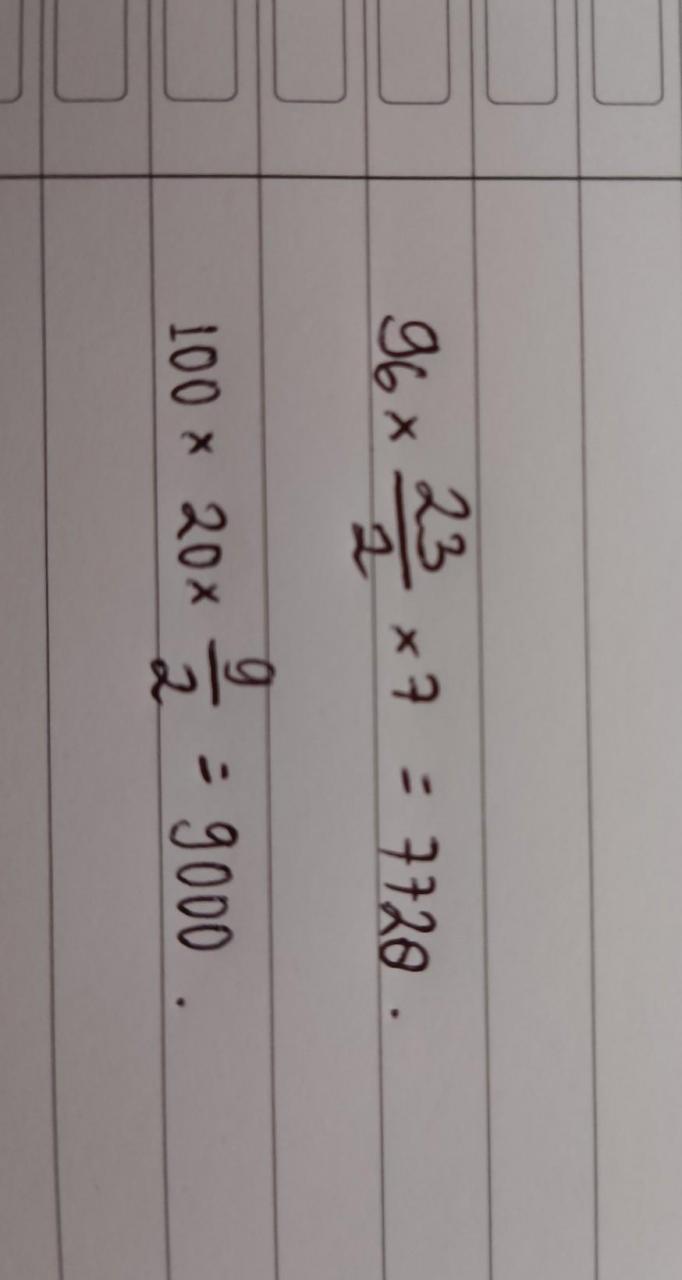 96 × 23/2 × 7 = 7728.
100 × 20 × 9/2 = 9000.